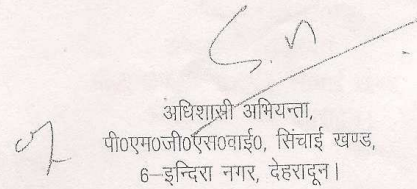 अधिशासी अभियन्ता,
पी०एम०जी०एस०वाई०, सिंचाई खण्ड,
6–इन्दिरा नगर, देहरादून।